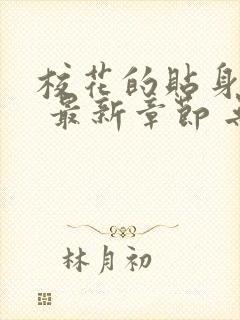 校花的贴身
最新章节
林月初